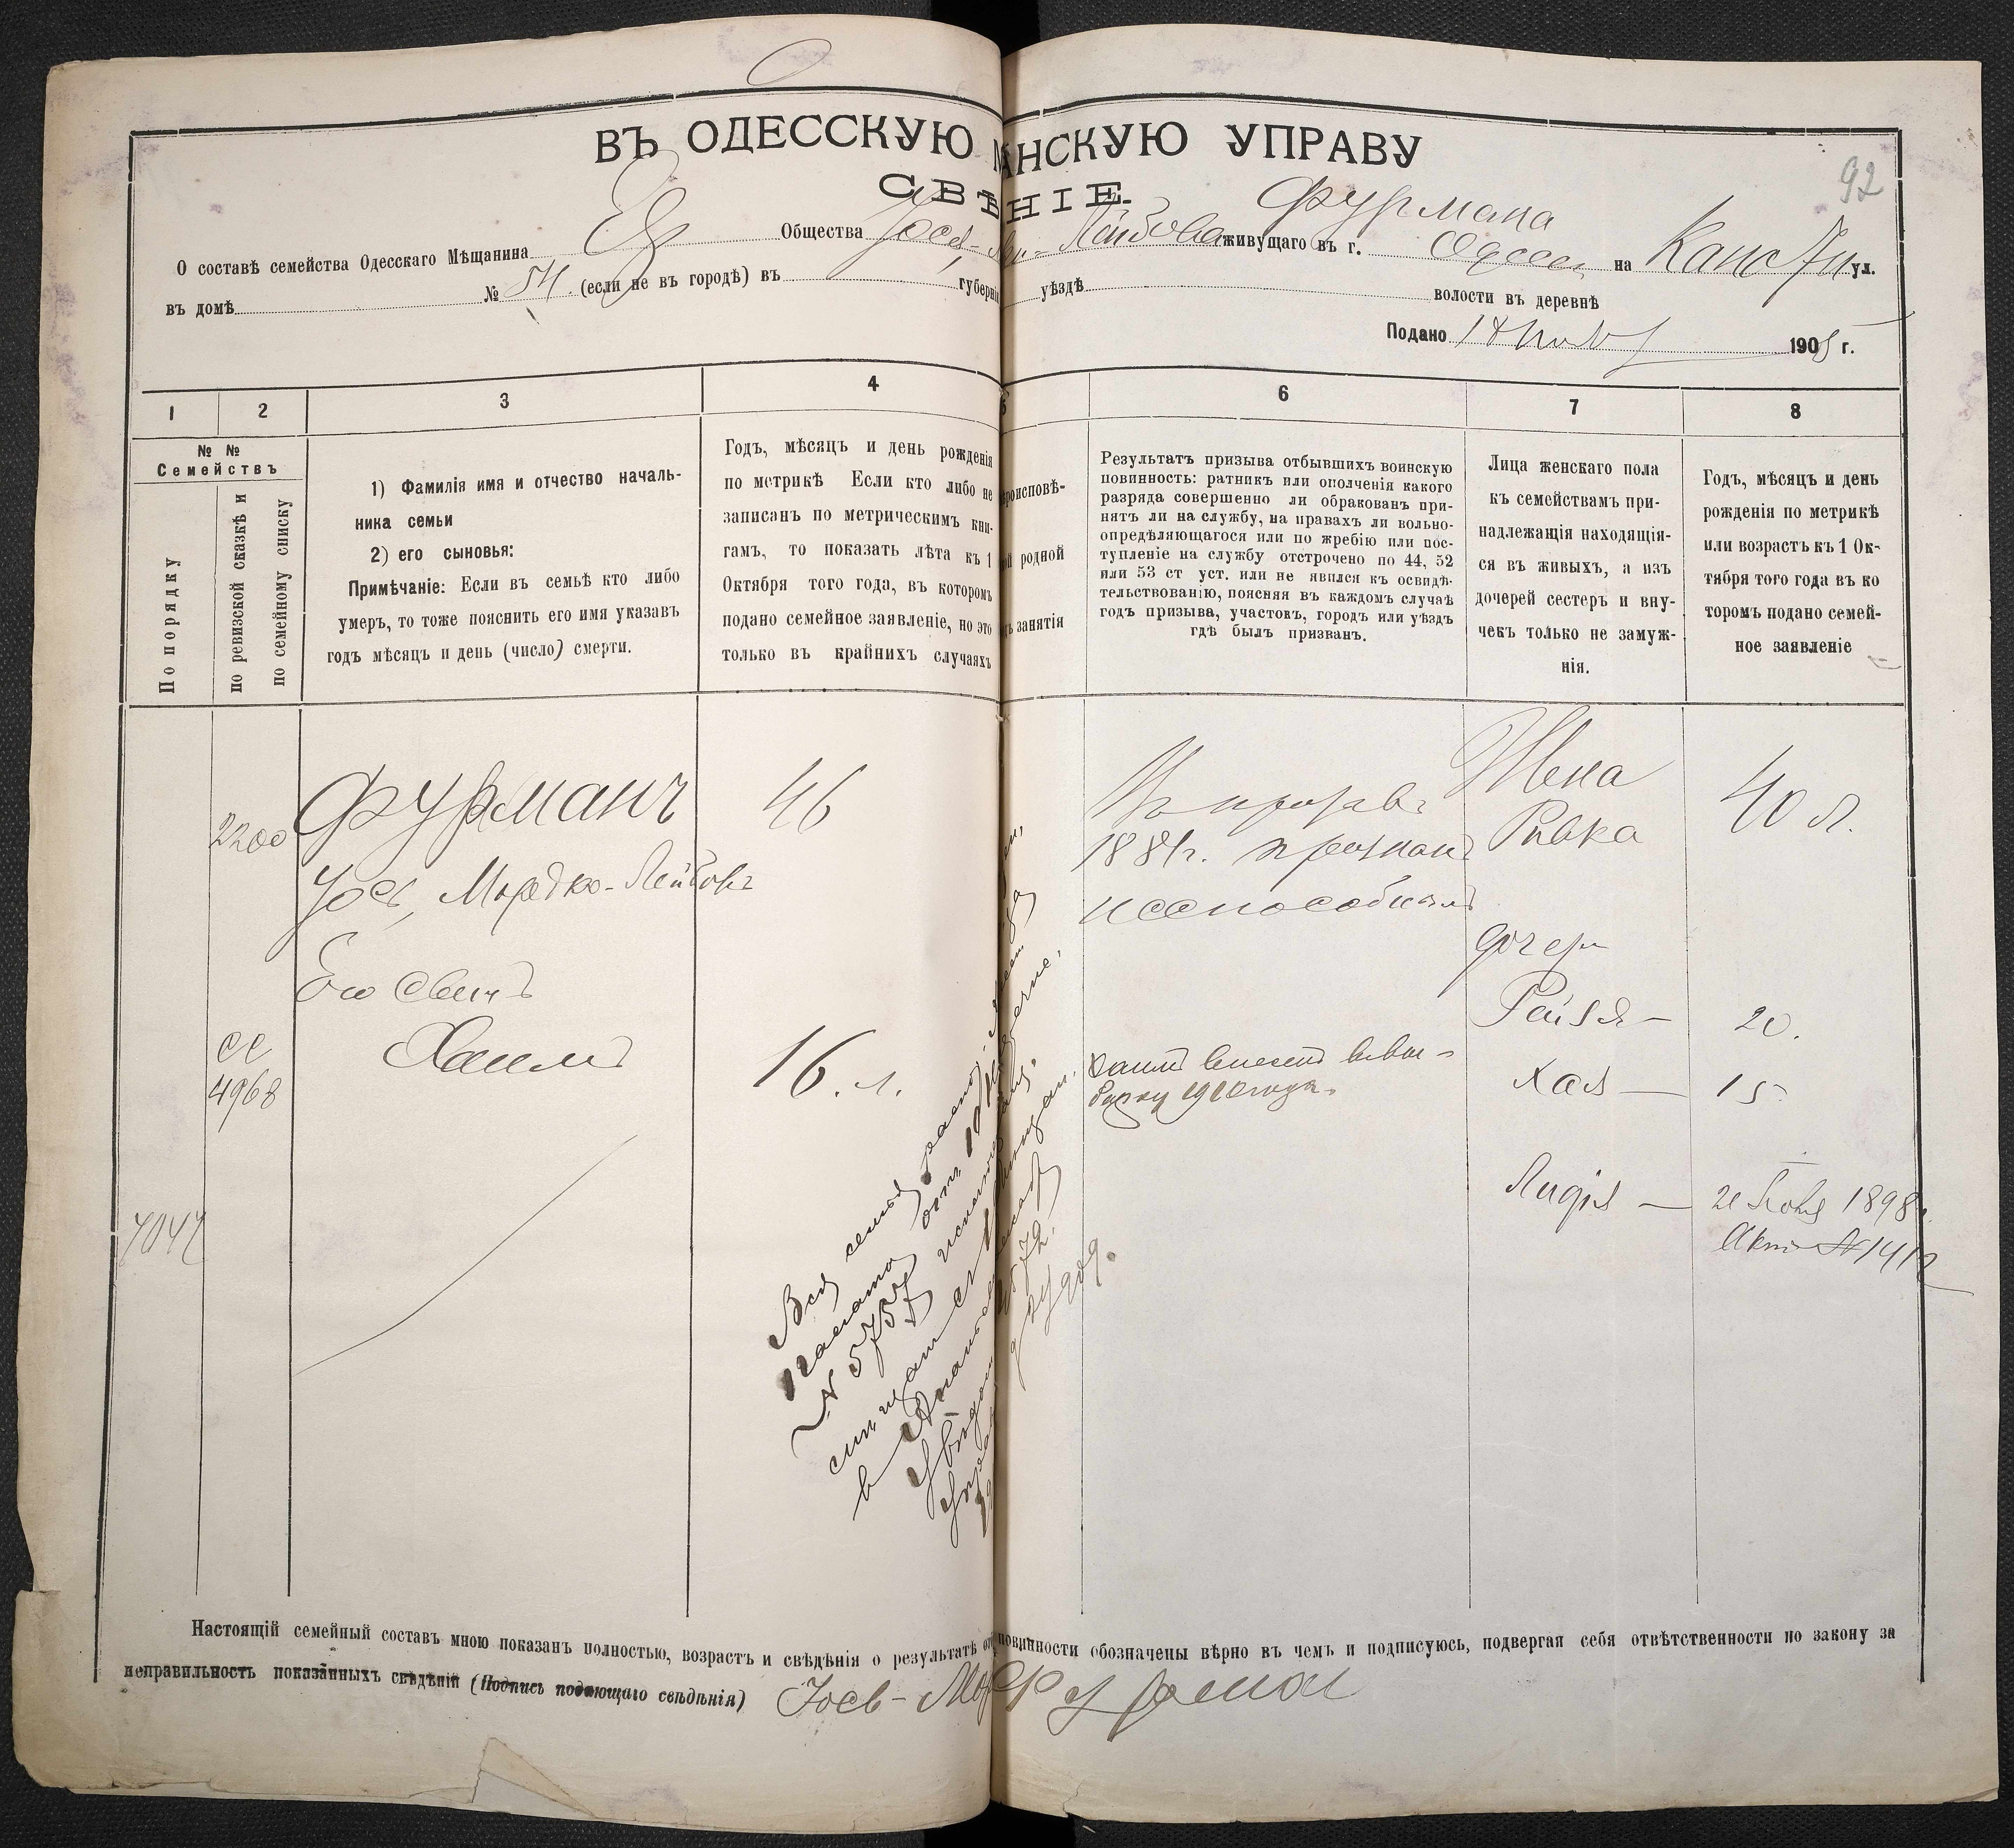 ВЪ ОДЕССКУЮ АНСКУЮ УПРАВУ
92
СВѢ НІЕ.
О составѣ семейства Одесскаго Мѣщанина Ев Общества живущаго въ г. Одесса на ул.
Фурмана
въ домѣ № 54 (если не въ городѣ) въ губерніи уѣздѣ волости въ деревнѣ
Подано 1905 г.
1 2 3 4 5 6 7 8
№ №
Семействъ
По порядку
по ревизской сказкѣ и
по семейному списку
1) Фамилія имя и отчество началь-
ника семьи
2) его сыновья:
Примѣчаніе: Если въ семьѣ кто либо
умеръ, то тоже пояснить его имя указавъ
годъ мѣсяцъ и день (число) смерти.
Годъ, мѣсяцъ и день рожденія
по метрикѣ Если кто либо не
записанъ по метрическимъ кни-
гамъ, то показать лѣта къ 1
Октября того года, въ которомъ
подано семейное заявленіе, но это
только въ крайнихъ случаяхъ
роисповѣ-
й родной
ъ занятія
Результатъ призыва отбывшихъ воинскую
повинность: ратникъ или ополченія какого
разряда совершенно ли обракованъ при-
нятъ ли на службу, на правахъ ли вольно-
опредѣляющагося или по жребію или пос-
тупленіе на службу отстрочено по 44, 52
или 53 ст уст. или не явился къ освидѣ-
тельствованію, поясняя въ каждомъ случаѣ
годъ призыва, участокъ, городъ или уѣздъ
гдѣ былъ призванъ.
Лица женскаго пола
къ семействамъ при-
надлежащія находящія-
ся въ живыхъ, а изъ
дочерей сестеръ и вну-
чекъ только не замуж-
нія.
Годъ, мѣсяцъ и день
рожденія по метрикѣ
или возрастъ къ 1 Ок-
тября того года въ ко
торомъ подано семей-
ное заявленіе
2200
Фурманъ
Іось Мордко-Лейбовъ
46
1881г. признанъ
неспособнымъ
Жена
Ривка
40 л.
Его сынъ
Хаимъ
4968
16 л.
Хаимъ внесенъ въ вы-
борку 1910 года.
дочери
Рейзя — 20.
Хая — 15
Лидія — 1898
Актъ № 1412
7047
Вся семья
№ 5757
Настоящій семейный составъ мною показанъ полностью, возрастъ и свѣдѣнія о результатѣ от повинности обозначены вѣрно въ чемъ и подписуюсь, подвергая себя отвѣтственности по закону за
неправильность показанныхъ свѣдѣній (Подпись подающаго свѣдѣнія) Іось-Мор Фурман